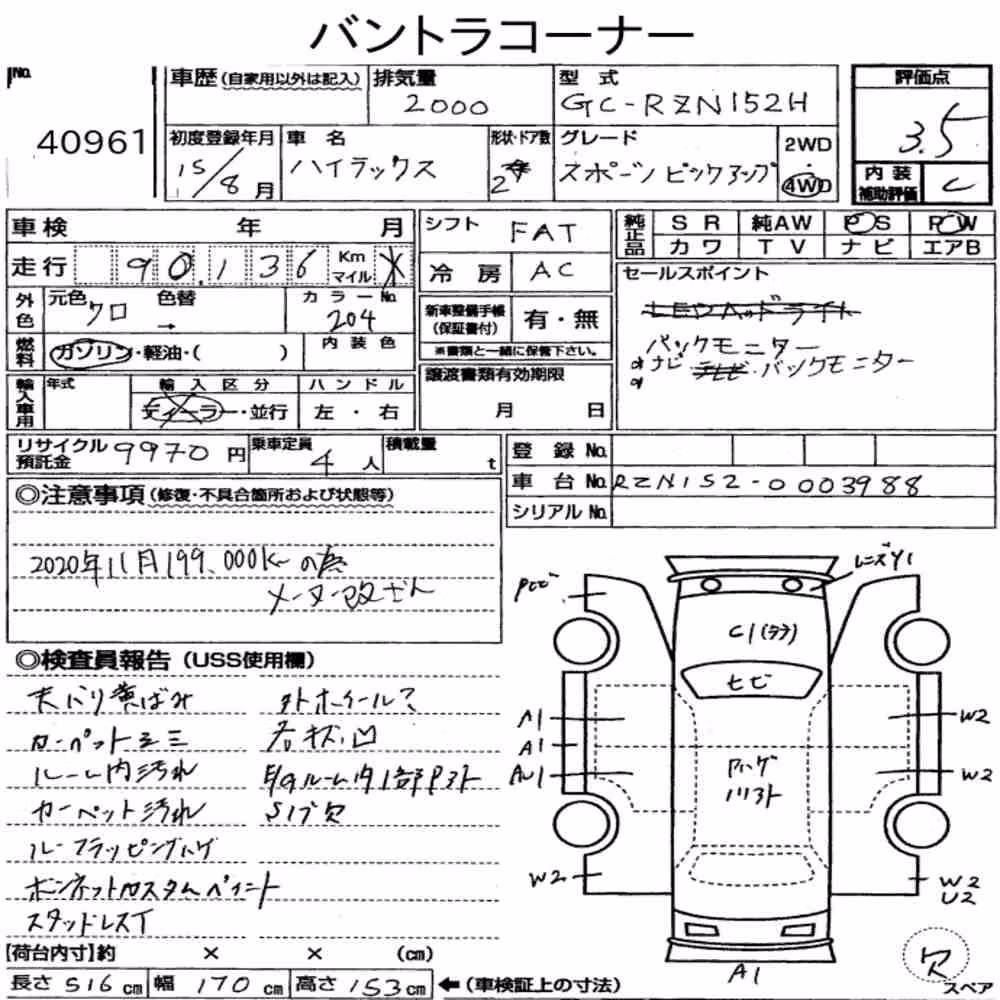 バントラコーナー
No.
40961
車歴(自家用以外は記入)
排気量
2000
型式
GC-RZN152H
評価点
3.5
内装補助評価
C
初度登録年月
15/8月
車名
ハイラックス
形状・ドア数
2
グレード
スポーツピックアップ
2WD
4WD
車検 年 月
走行 90,136 Km マイル
シフト FAT
冷房 AC
純正品 SR 純AW PS PW
カワ TV ナビ エアB
外色 元色 クロ 色替 →
カラーNo. 204
燃料 ガソリン・軽油・( )
内装色
新車整備手帳(保証書付) 有・無
※書類と一緒に保管下さい。
セールスポイント
LEDヘッドライト
バックモニター
ナビ テレビ・バックモニター
輸入車用 年式
輸入区分 ディーラー・並行
ハンドル 左・右
譲渡書類有効期限
月 日
リサイクル預託金 9970円
乗車定員 4人
積載量 t
登録No.
車台No. RZN152-0003988
シリアルNo.
◎注意事項(修復・不具合箇所および状態等)
2020年11月199,000K
メーター改ざん
◎検査員報告(USS使用欄)
天バリ黄ばみ
カーペットシミ
ルーム内汚れ
カーペット汚れ
ルーフラッピングハゲ
ボンネットカスタムペイント
スタッドレスT
外ホイール?
右狀凹
ルーム内1部
欠
レンズY1
C1(ラフ)
ヒビ
A1
A1
W2
W2
W2
W2
U2
A1
欠
スペア
【荷台内寸】約 × × (cm)
長さ 516cm 幅 170cm 高さ 153cm ←(車検証上の寸法)